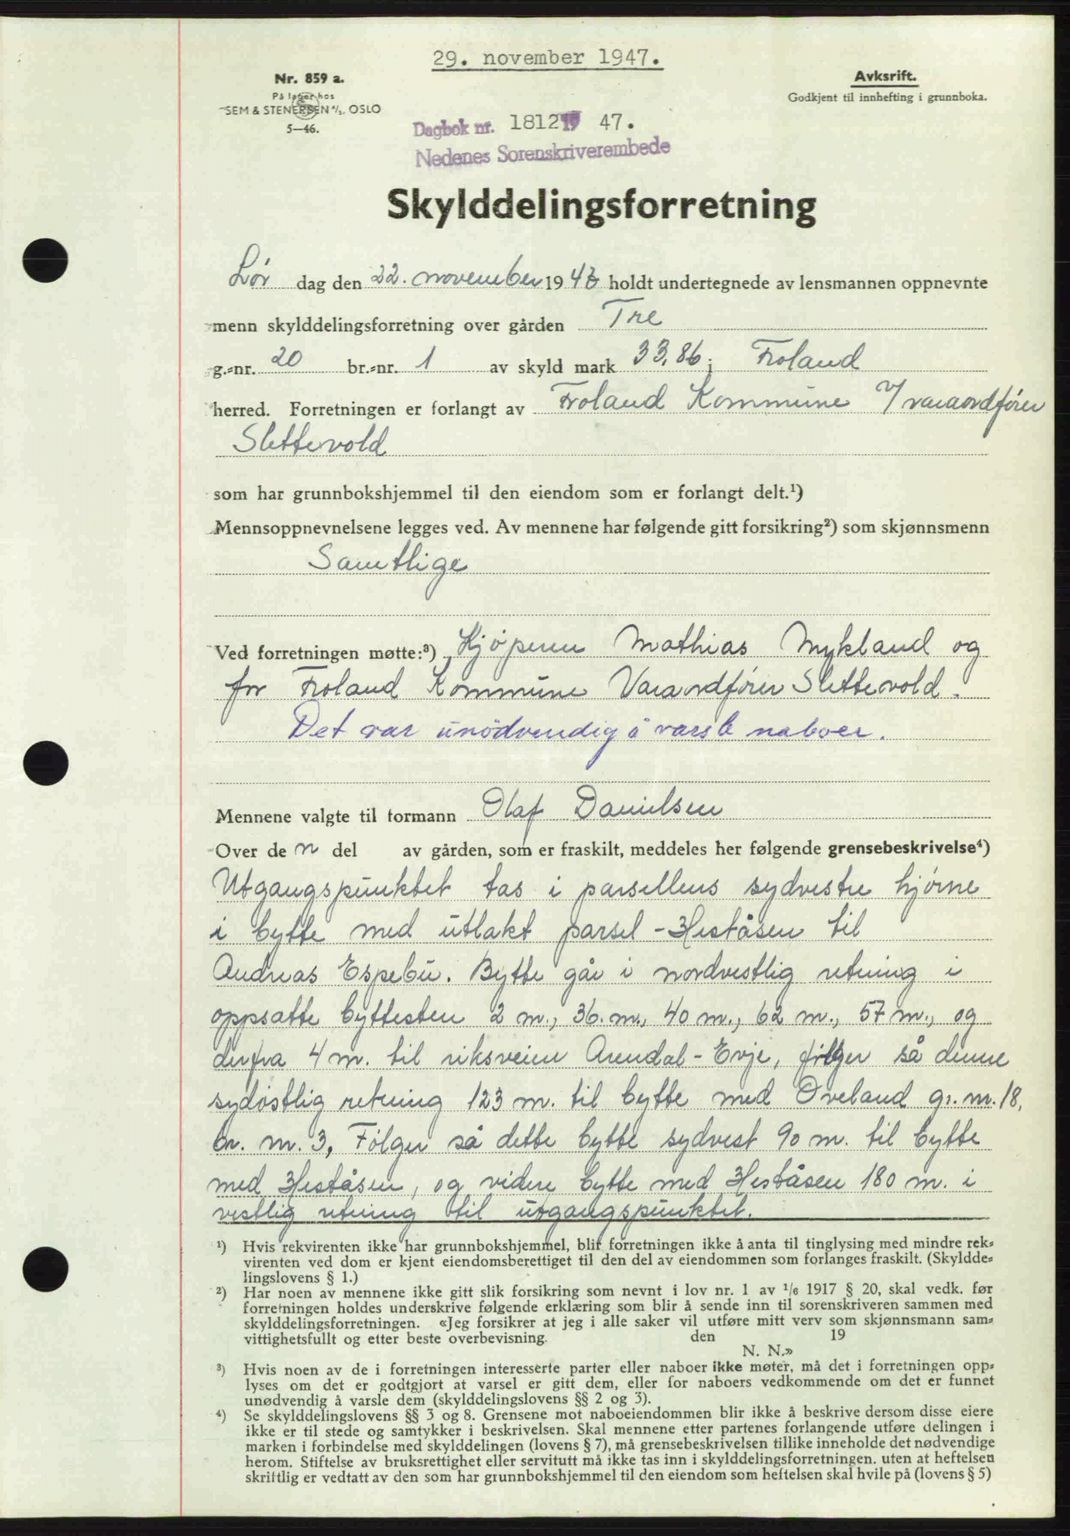 29. november 1947.
Nr. 859 a.
På lager hos
SEM & STENERSEN A/S. OSLO
5-46.
Avskrift.
Godkjent til innhefting i grunnboka.
Dagbok nr. 1812 19 47.
Nedenes Sorenskriverembede
Skylddelingsforretning
Lør dag den 22. november 1947 holdt undertegnede av lensmannen oppnevnte
menn skylddelingsforretning over gården Tre
g.-nr. 20 br.-nr. 1 av skyld mark 33,86 i Froland
herred. Forretningen er forlangt av Froland Kommune v/ varaordfører
Slettevold
som har grunnbokshjemmel til den eiendom som er forlangt delt.¹)
Mennsoppnevnelsene legges ved. Av mennene har følgende gitt forsikring²) som skjønnsmenn
Samtlige
Ved forretningen møtte:³) Kjøperen Mathias Nykland og
for Froland Kommune Varaordfører Slettevold.
Det var unödvendig å varsle naboer.
Mennene valgte til formann Olaf Danielsen
Over de n del av gården, som er fraskilt, meddeles her følgende grensebeskrivelse⁴)
Utgangspunktet tas i parsellens sydvestre hjørne
i bytte med utlakt parsel - Heståsen til
Andreas Espebu. Bytte går i nordvestlig retning i
oppsatte byttesten 2 m., 36 m., 40 m., 62 m., 57 m., og
derfra 4 m. til riksveien Arendal - Evje, følger så denne
sydøstlig retning 123 m. til bytte med Øveland gr. nr. 18,
br. nr. 3, Følger så dette bytte sydvest 90 m. til bytte
med Heståsen, og videre bytte med Heståsen 180 m. i
vestlig retning til utgangspunktet.
¹) Hvis rekvirenten ikke har grunnbokshjemmel, blir forretningen ikke å anta til tinglysing med mindre rek-
virenten ved dom er kjent eiendomsberettiget til den del av eiendommen som forlanges fraskilt. (Skyldde-
lingslovens § 1.)
²) Har noen av mennene ikke gitt slik forsikring som nevnt i lov nr. 1 av 1/6 1917 § 20, skal vedk. før
forretningen holdes underskrive følgende erklæring som blir å sende inn til sorenskriveren sammen med
skylddelingsforretningen. «Jeg forsikrer at jeg i alle saker vil utføre mitt verv som skjønnsmann sam-
vittighetsfullt og etter beste overbevisning. den 19
N. N.»
³) Hvis noen av de i forretningen interesserte parter eller naboer ikke møter, må det i forretningen opp-
lyses om det er godtgjort at varsel er gitt dem, eller for naboers vedkommende om det er funnet
unødvendig å varsle dem (skylddelingslovens §§ 2 og 3).
⁴) Se skylddelingslovens §§ 3 og 8. Grensene mot naboeiendommen blir ikke å beskrive dersom disse eiere
ikke er til stede og samtykker i beskrivelsen. Skal mennene etter partenes forlangende utføre delingen i
marken i forbindelse med skylddelingen (lovens § 7), må grensebeskrivelsen tillike inneholde det nødvendige
herom. Stiftelse av bruksrettighet eller servitutt må ikke tas inn i skylddelingsforretningen. uten at heftelsen
skriftlig er vedtatt av den som har grunnbokshjemmel til den eiendom som heftelsen skal hvile på (lovens § 5)